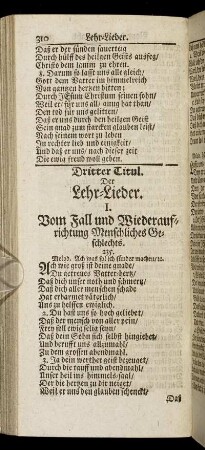 310 Lehr-Lieder.
Daß er der sünden saurerteig
Durch hülff des heilgen Geists ausfeg/
Christo dem lamm zu ehren.
8. Darum so lasst uns alle gleich/
Gott dem Vatter im himmelreich
Von gantzen hertzen bitten:
Durch JEsum Christum seinen sohn/
Weil er für uns all gnug hat than/
Den tod für uns gelitten:
Daß er uns durch den heilgen Geist
Sein gnad zum starcken glauben leist/
Nach seinem wort zu leben
In rechter lieb und einigkeit/
Und daß er uns nach dieser zeit
Die ewig freud woll geben.
Dritter Titul.
Der
Lehr-Lieder.
I.
Vom Fall und Wiederauf-
richtung Menschliches Ge-
schlechts.
235.
Melod. Ach was soll ich sünder machen/ ꝛc.
Ach wie groß ist deine gnade/
Du getreues Vatter-hertz/
Daß dich unser noth und schmertz/
Daß dich aller menschen schade
Hat erbarmet väterlich/
Uns zu helffen ewiglich.
2. Du hast uns so hoch geliebet/
Daß der mensch von aller pein/
Frey soll ewig selig seyn/
Daß dein Sohn sich selbst hingiebet/
Und berufft uns allzumahl/
Zu dem grossen abendmahl.
3. Ja dein werther geist bezeuget/
Durch die tauff und abendmahl/
Unser heil ins himmels-saal/
Der die hertzen zu dir neiget/
Weil er uns den glauben schenckt/
Daß